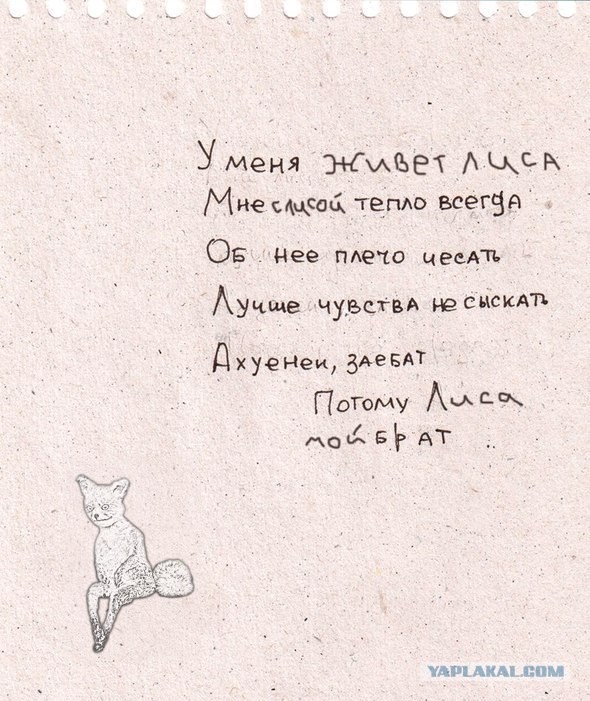 У меня живет лиса
Мне с лисой тепло всегда
Об нее плечо чесать
Лучше чувства не сыскать
Ахуенеи, заебат
Потому Лиса
мой брат
YAPLAKAL.COM